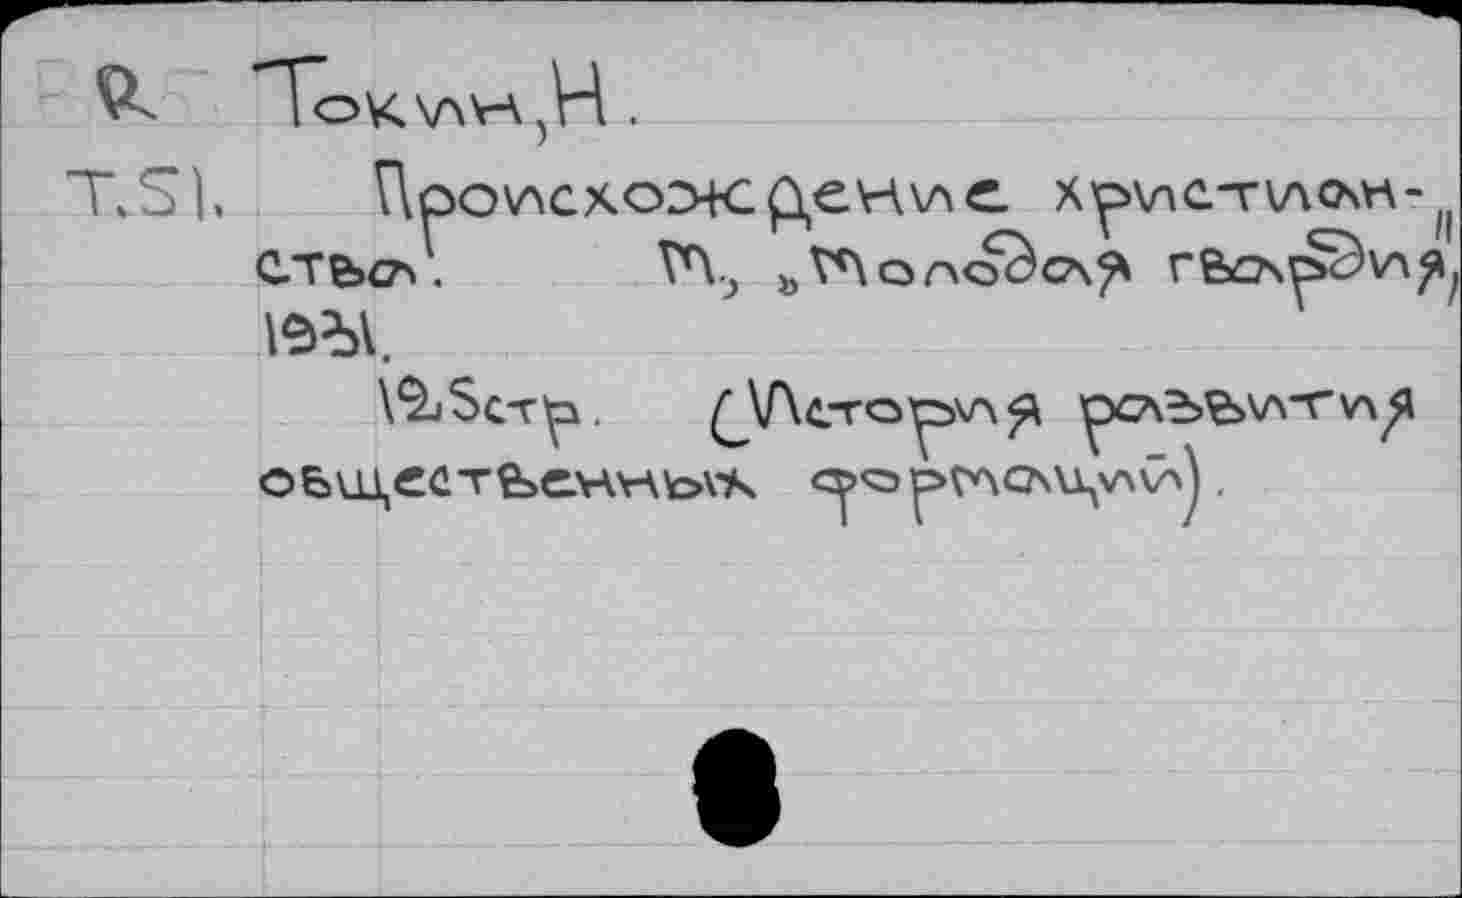 R Токин, Н.
T.51. Происхождение христиан-
ства. М., „Молодая гвардия",
1931.
125 стр. (История развития
общественных формаций).